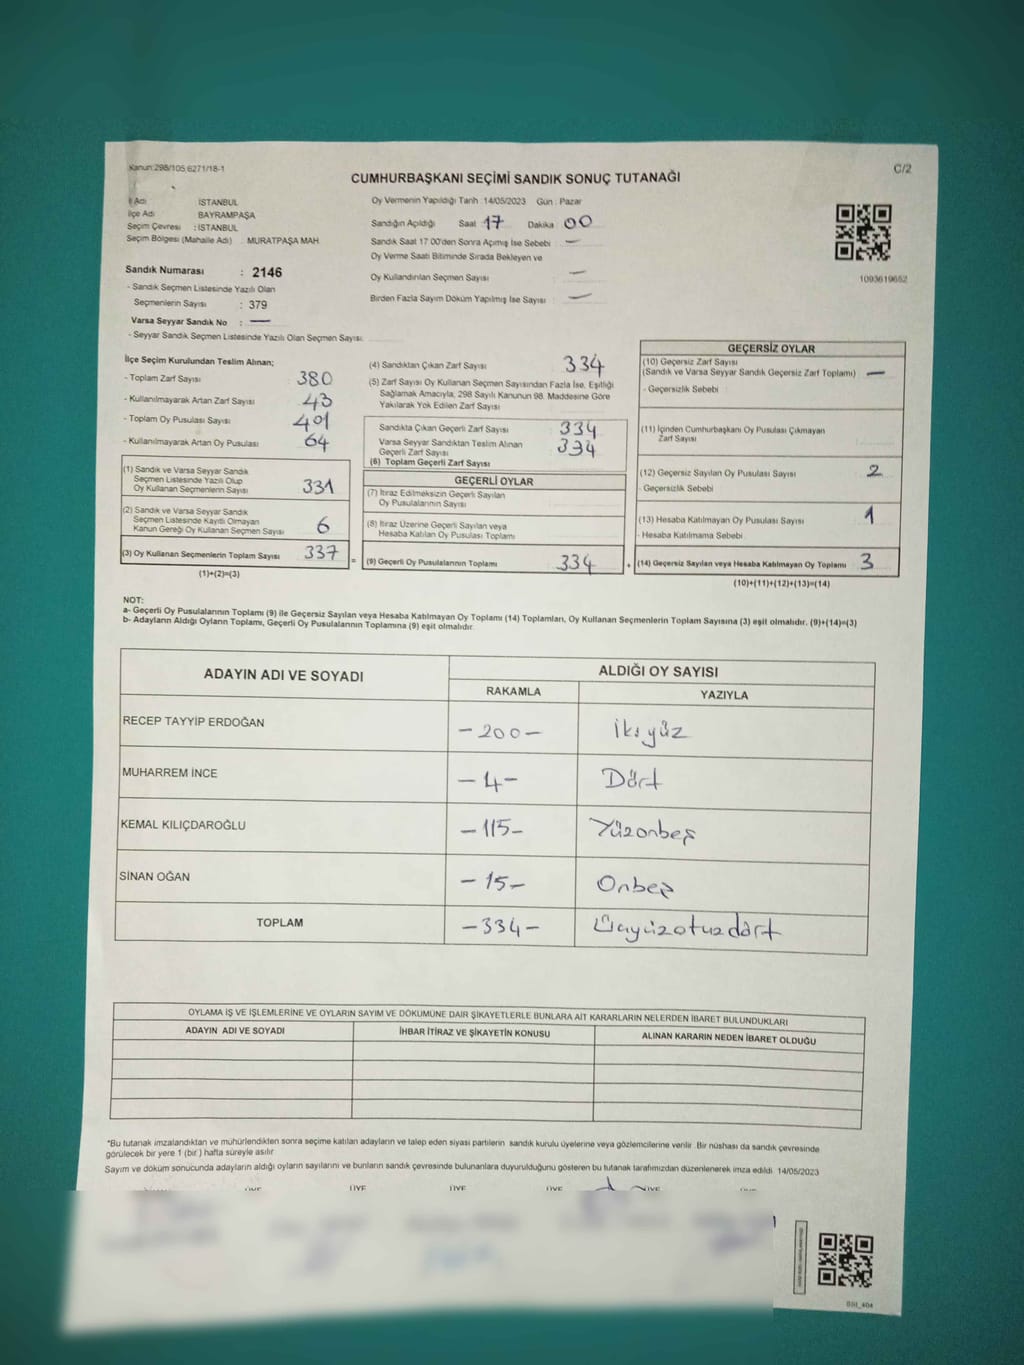 Kanun:298/105,6271/18-1
C/2
CUMHURBAŞKANI SEÇİMİ SANDIK SONUÇ TUTANAĞI
İl Adı İSTANBUL
İlçe Adı BAYRAMPAŞA
Seçim Çevresi : İSTANBUL
Seçim Bölgesi (Mahalle Adı) MURATPAŞA MAH.
Oy Vermenin Yapıldığı Tarih 14/05/2023 Gün : Pazar
Sandığın Açıldığı Saat 17 Dakika 00
Sandık Saat 17 00'den Sonra Açılmış İse Sebebi —
Oy Verme Saati Bitiminde Sırada Bekleyen ve
Oy Kullandırılan Seçmen Sayısı —
Birden Fazla Sayım Döküm Yapılmış İse Sayısı —
1093619652
Sandık Numarası : 2146
- Sandık Seçmen Listesinde Yazılı Olan
Seçmenlerin Sayısı : 379
Varsa Seyyar Sandık No : —
- Seyyar Sandık Seçmen Listesinde Yazılı Olan Seçmen Sayısı
İlçe Seçim Kurulundan Teslim Alınan;
- Toplam Zarf Sayısı 380
- Kullanılmayarak Artan Zarf Sayısı 43
- Toplam Oy Pusulası Sayısı 401
- Kullanılmayarak Artan Oy Pusulası 64
(1) Sandık ve Varsa Seyyar Sandık
Seçmen Listesinde Yazılı Olup
Oy Kullanan Seçmenlerin Sayısı 331
(2) Sandık ve Varsa Seyyar Sandık
Seçmen Listesinde Kayıtlı Olmayan
Kanun Gereği Oy Kullanan Seçmen Sayısı 6
(3) Oy Kullanan Seçmenlerin Toplam Sayısı 337
(1)+(2)=(3)
(4) Sandıktan Çıkan Zarf Sayısı 334
(5) Zarf Sayısı Oy Kullanan Seçmen Sayısından Fazla İse, Eşitliği
Sağlamak Amacıyla, 298 Sayılı Kanunun 98. Maddesine Göre
Yakılarak Yok Edilen Zarf Sayısı
Sandıkta Çıkan Geçerli Zarf Sayısı 334
Varsa Seyyar Sandıktan Teslim Alınan
Geçerli Zarf Sayısı 334
(6) Toplam Geçerli Zarf Sayısı
GEÇERLİ OYLAR
(7) İtiraz Edilmeksizin Geçerli Sayılan
Oy Pusulalarının Sayısı
(8) İtiraz Üzerine Geçerli Sayılan veya
Hesaba Katılan Oy Pusulası Toplamı
= (9) Geçerli Oy Pusulalarının Toplamı 334 +
GEÇERSİZ OYLAR
(10) Geçersiz Zarf Sayısı
(Sandık ve Varsa Seyyar Sandık Geçersiz Zarf Toplamı) —
- Geçersizlik Sebebi
(11) İçinden Cumhurbaşkanı Oy Pusulası Çıkmayan
Zarf Sayısı
(12) Geçersiz Sayılan Oy Pusulası Sayısı 2
- Geçersizlik Sebebi
(13) Hesaba Katılmayan Oy Pusulası Sayısı 1
- Hesaba Katılmama Sebebi
(14) Geçersiz Sayılan veya Hesaba Katılmayan Oy Toplamı 3
(10)+(11)+(12)+(13)=(14)
NOT:
a- Geçerli Oy Pusulalarının Toplamı (9) ile Geçersiz Sayılan veya Hesaba Katılmayan Oy Toplamı (14) Toplamları, Oy Kullanan Seçmenlerin Toplam Sayısına (3) eşit olmalıdır. (9)+(14)=(3)
b- Adayların Aldığı Oyların Toplamı, Geçerli Oy Pusulalarının Toplamına (9) eşit olmalıdır
ADAYIN ADI VE SOYADI
ALDIĞI OY SAYISI
RAKAMLA YAZIYLA
RECEP TAYYİP ERDOĞAN -200- İkiyüz
MUHARREM İNCE -4- Dört
KEMAL KILIÇDAROĞLU -115- Yüzonbeş
SİNAN OĞAN -15- Onbeş
TOPLAM -334- Üçyüzotuzdört
OYLAMA İŞ VE İŞLEMLERİNE VE OYLARIN SAYIM VE DÖKÜMÜNE DAİR ŞİKAYETLERLE BUNLARA AİT KARARLARIN NELERDEN İBARET BULUNDUKLARI
ADAYIN ADI VE SOYADI İHBAR İTİRAZ VE ŞİKAYETİN KONUSU ALINAN KARARIN NEDEN İBARET OLDUĞU
*Bu tutanak imzalandıktan ve mühürlendikten sonra seçime katılan adayların ve talep eden siyasi partilerin sandık kurulu üyelerine veya gözlemcilerine verilir. Bir nüshası da sandık çevresinde
görülecek bir yere 1 (bir) hafta süreyle asılır
Sayım ve döküm sonucunda adayların aldığı oyların sayılarını ve bunların sandık çevresinde bulunanlara duyurulduğunu gösteren bu tutanak tarafımızdan düzenlenerek imza edildi 14/05/2023
ÜYE ÜYE ÜYE ÜYE ÜYE